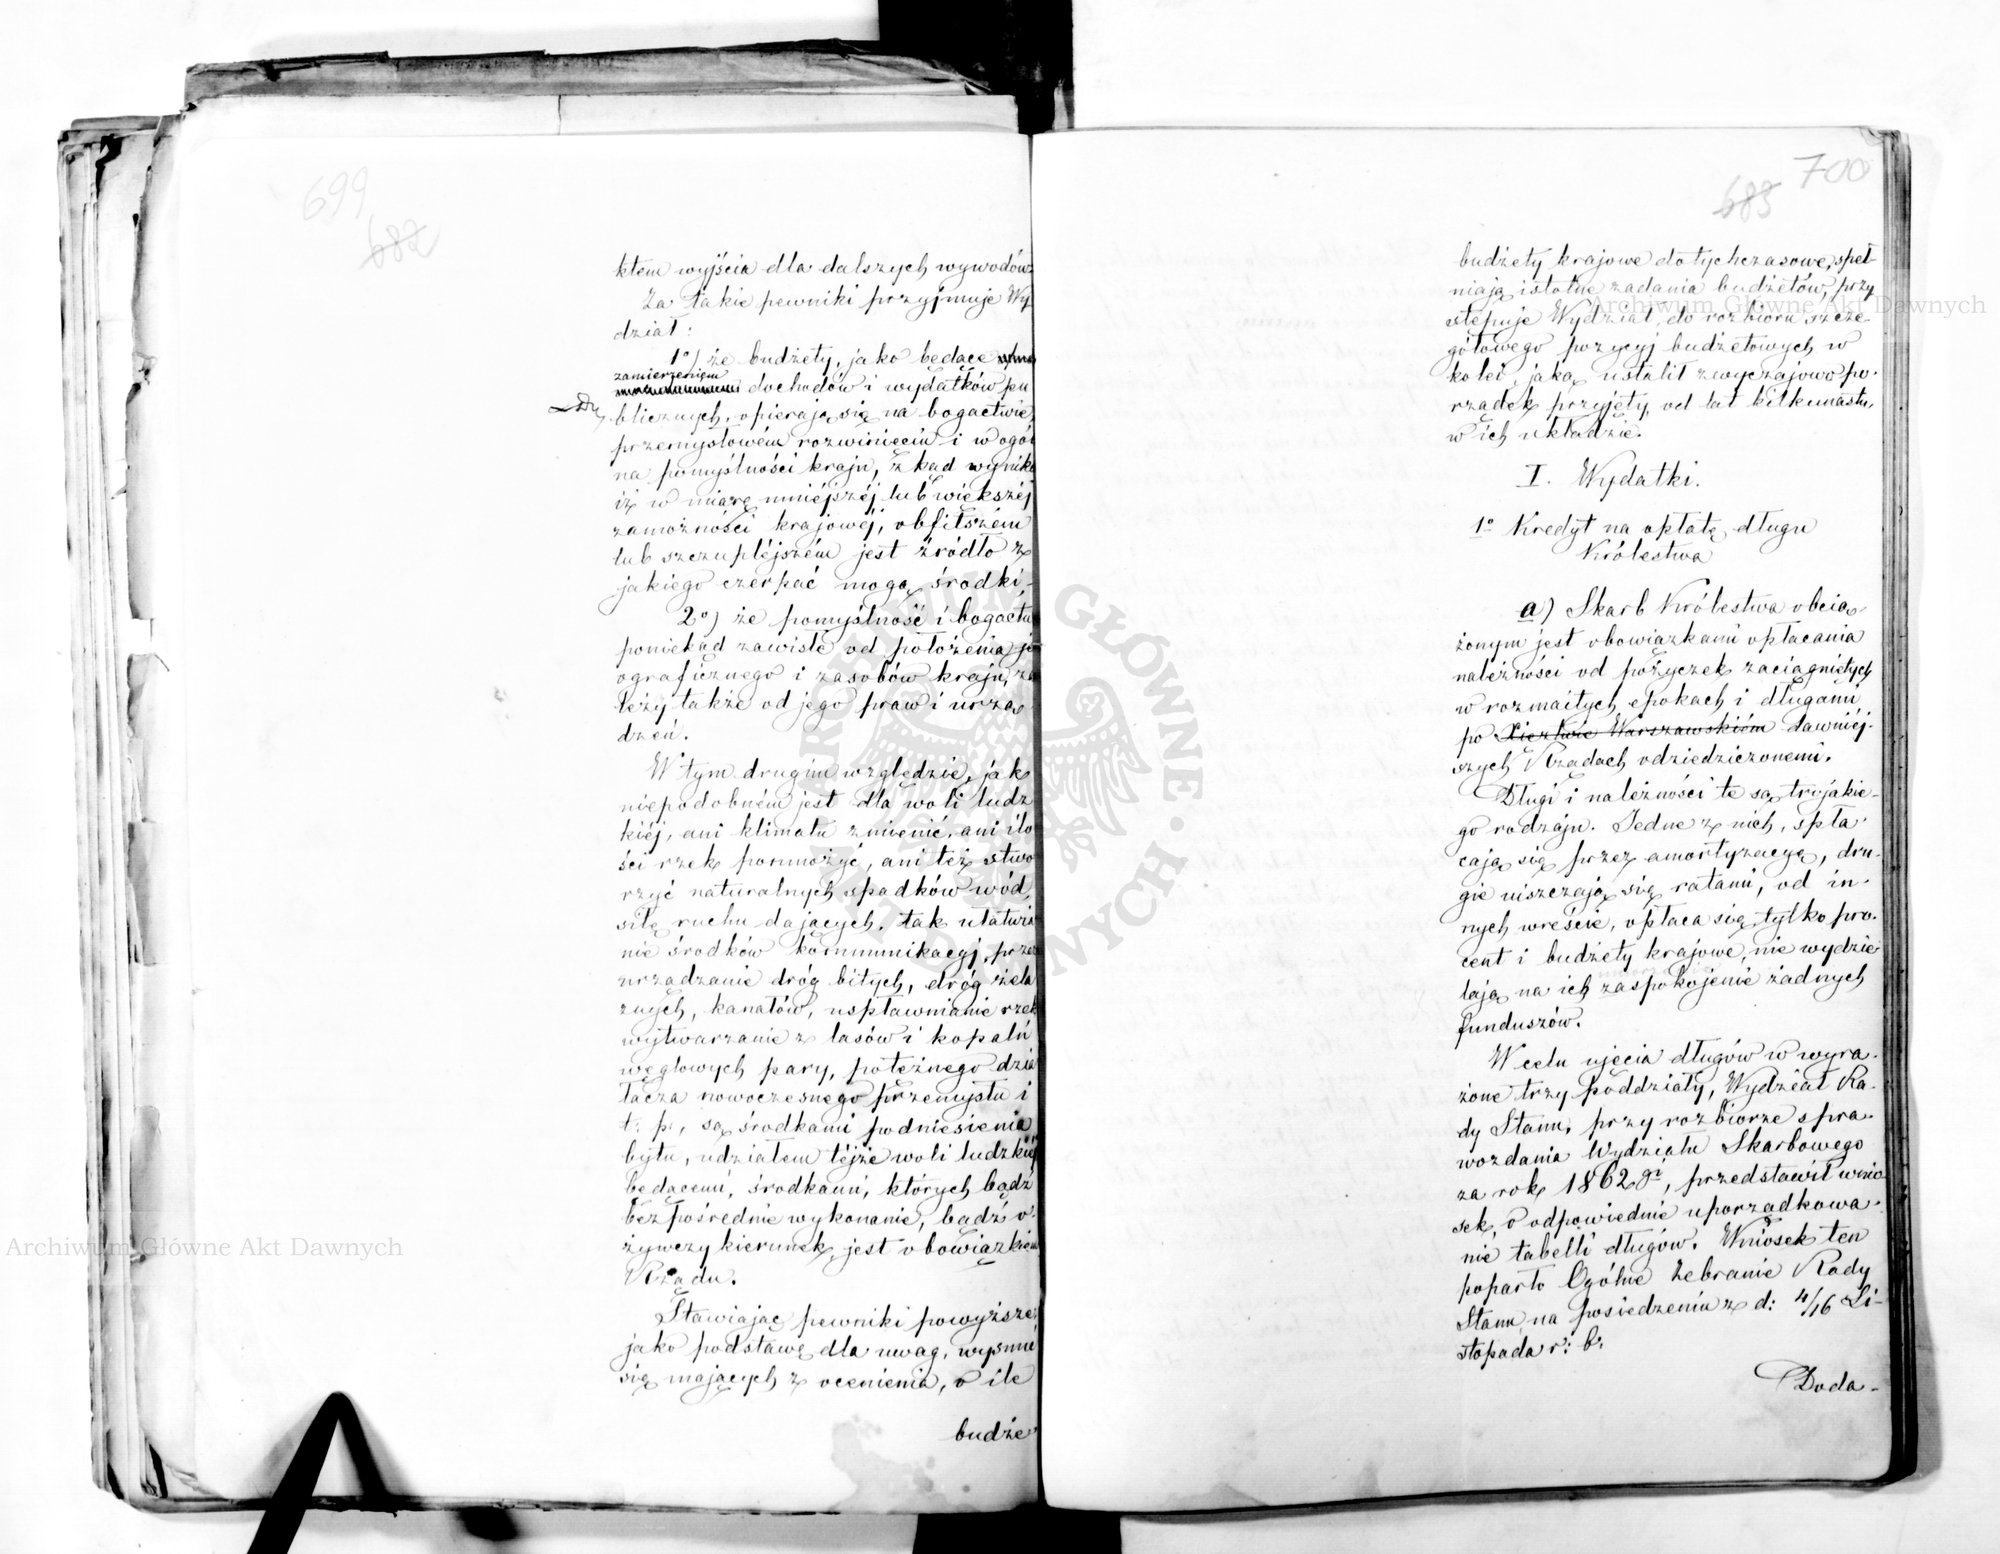 699
682
ktem wyjścia dla dalszych wywodów
Za takie pewniki przyjmuje Wy
dział:
1º) że budżety, jako będące
zamierzeniem
dochodów i wydatków pu
blicznych, opierają się na bogactwie
przemysłowém rozwinięciu i w ogól
na pomyślności kraju, zkąd wynika
iż w miarę mniéjszéj lub większéj
zamożności krajowéj, obfitszém
lub szczupléjszém jest źródło z
jakiego czerpać mogą środki.
2º) że pomyślność i bogactw
poniekąd zawisłe od położenia je
ograficznego i zasobów kraju, za
leży także od jego praw i urzą
dzeń.
W tym drugim względzie, jak
niepodobném jest dla woli ludz
kiéj, ani klimatu zmienić, ani ilo
ści rzek pomnożyć, ani też stwo
rzyć naturalnych spadków wód,
siłę ruchu dających, tak ułatwie
nie środków kommunikacyj, prze
urządzanie dróg bitych, dróg żela
znych, kanałów, uspławnianie rzek
wytwarzanie z lasów i kopalń
węglowych pary, potężnego dzia
łacza nowoczesnego przemysłu i
t. p., są środkami podniesienia
bytu, udziałem téjże woli ludzkiéj
będącemi, środkami, których bądź
bezpośrednie wykonanie, bądź o
żywczy kierunek, jest obowiązkiem
Rządu.
Stawiając pewniki powyższe,
jako podstawę dla uwag, wysnuć
się mających z ocenienia, o ile
budże
700
683
budżety krajowe dotychczasowe, speł-
niają istotne zadania budżetów, przy
stępuje Wydział, do rozbioru szcze-
gółowego pozycyj budżetowych w
kolei, jaką ustalił zwyczajowo po-
rządek przyjęty, od lat kilkunastu,
w ich układzie.
I. Wydatki.
1º Kredyt na opłatę długu
Królestwa
a) Skarb Królestwa obcią-
żonym jest obowiązkami opłacania
należności od pożyczek zaciągniętych
w rozmaitych epokach i długami
po Xięztwie Warszawskiém dawniéj-
szych Rządach odziedziczonemi.
Długi i należności te są trojakie-
go rodzaju. Jedne z nich, spła-
cają się przez amortyzacyą, dru-
gie uiszczają się ratami, od in-
nych wreście, opłaca się tylko pro-
cent i budżety krajowe, nie wydzie
lają na ich zaspokojenie żadnych
funduszów.
W celu ujęcia długów w wyra-
żone trzy poddziały, Wydział Ra-
dy Stanu, przy rozbiorze spra-
wozdania Wydziału Skarbowego
za rok 1862gi, przedstawił wnio
sek, o odpowiednie uporządkowa-
nie tabelli długów. Wniosek ten
poparło Ogólne Zebranie Rady
Stanu, na posiedzeniu z d: 4/16 Li-
stopada r: b.
Doda-
Archiwum Główne Akt Dawnych
Archiwum Główne Akt Dawnych
ARCHIWUM GŁÓWNE AKT DAWNYCH